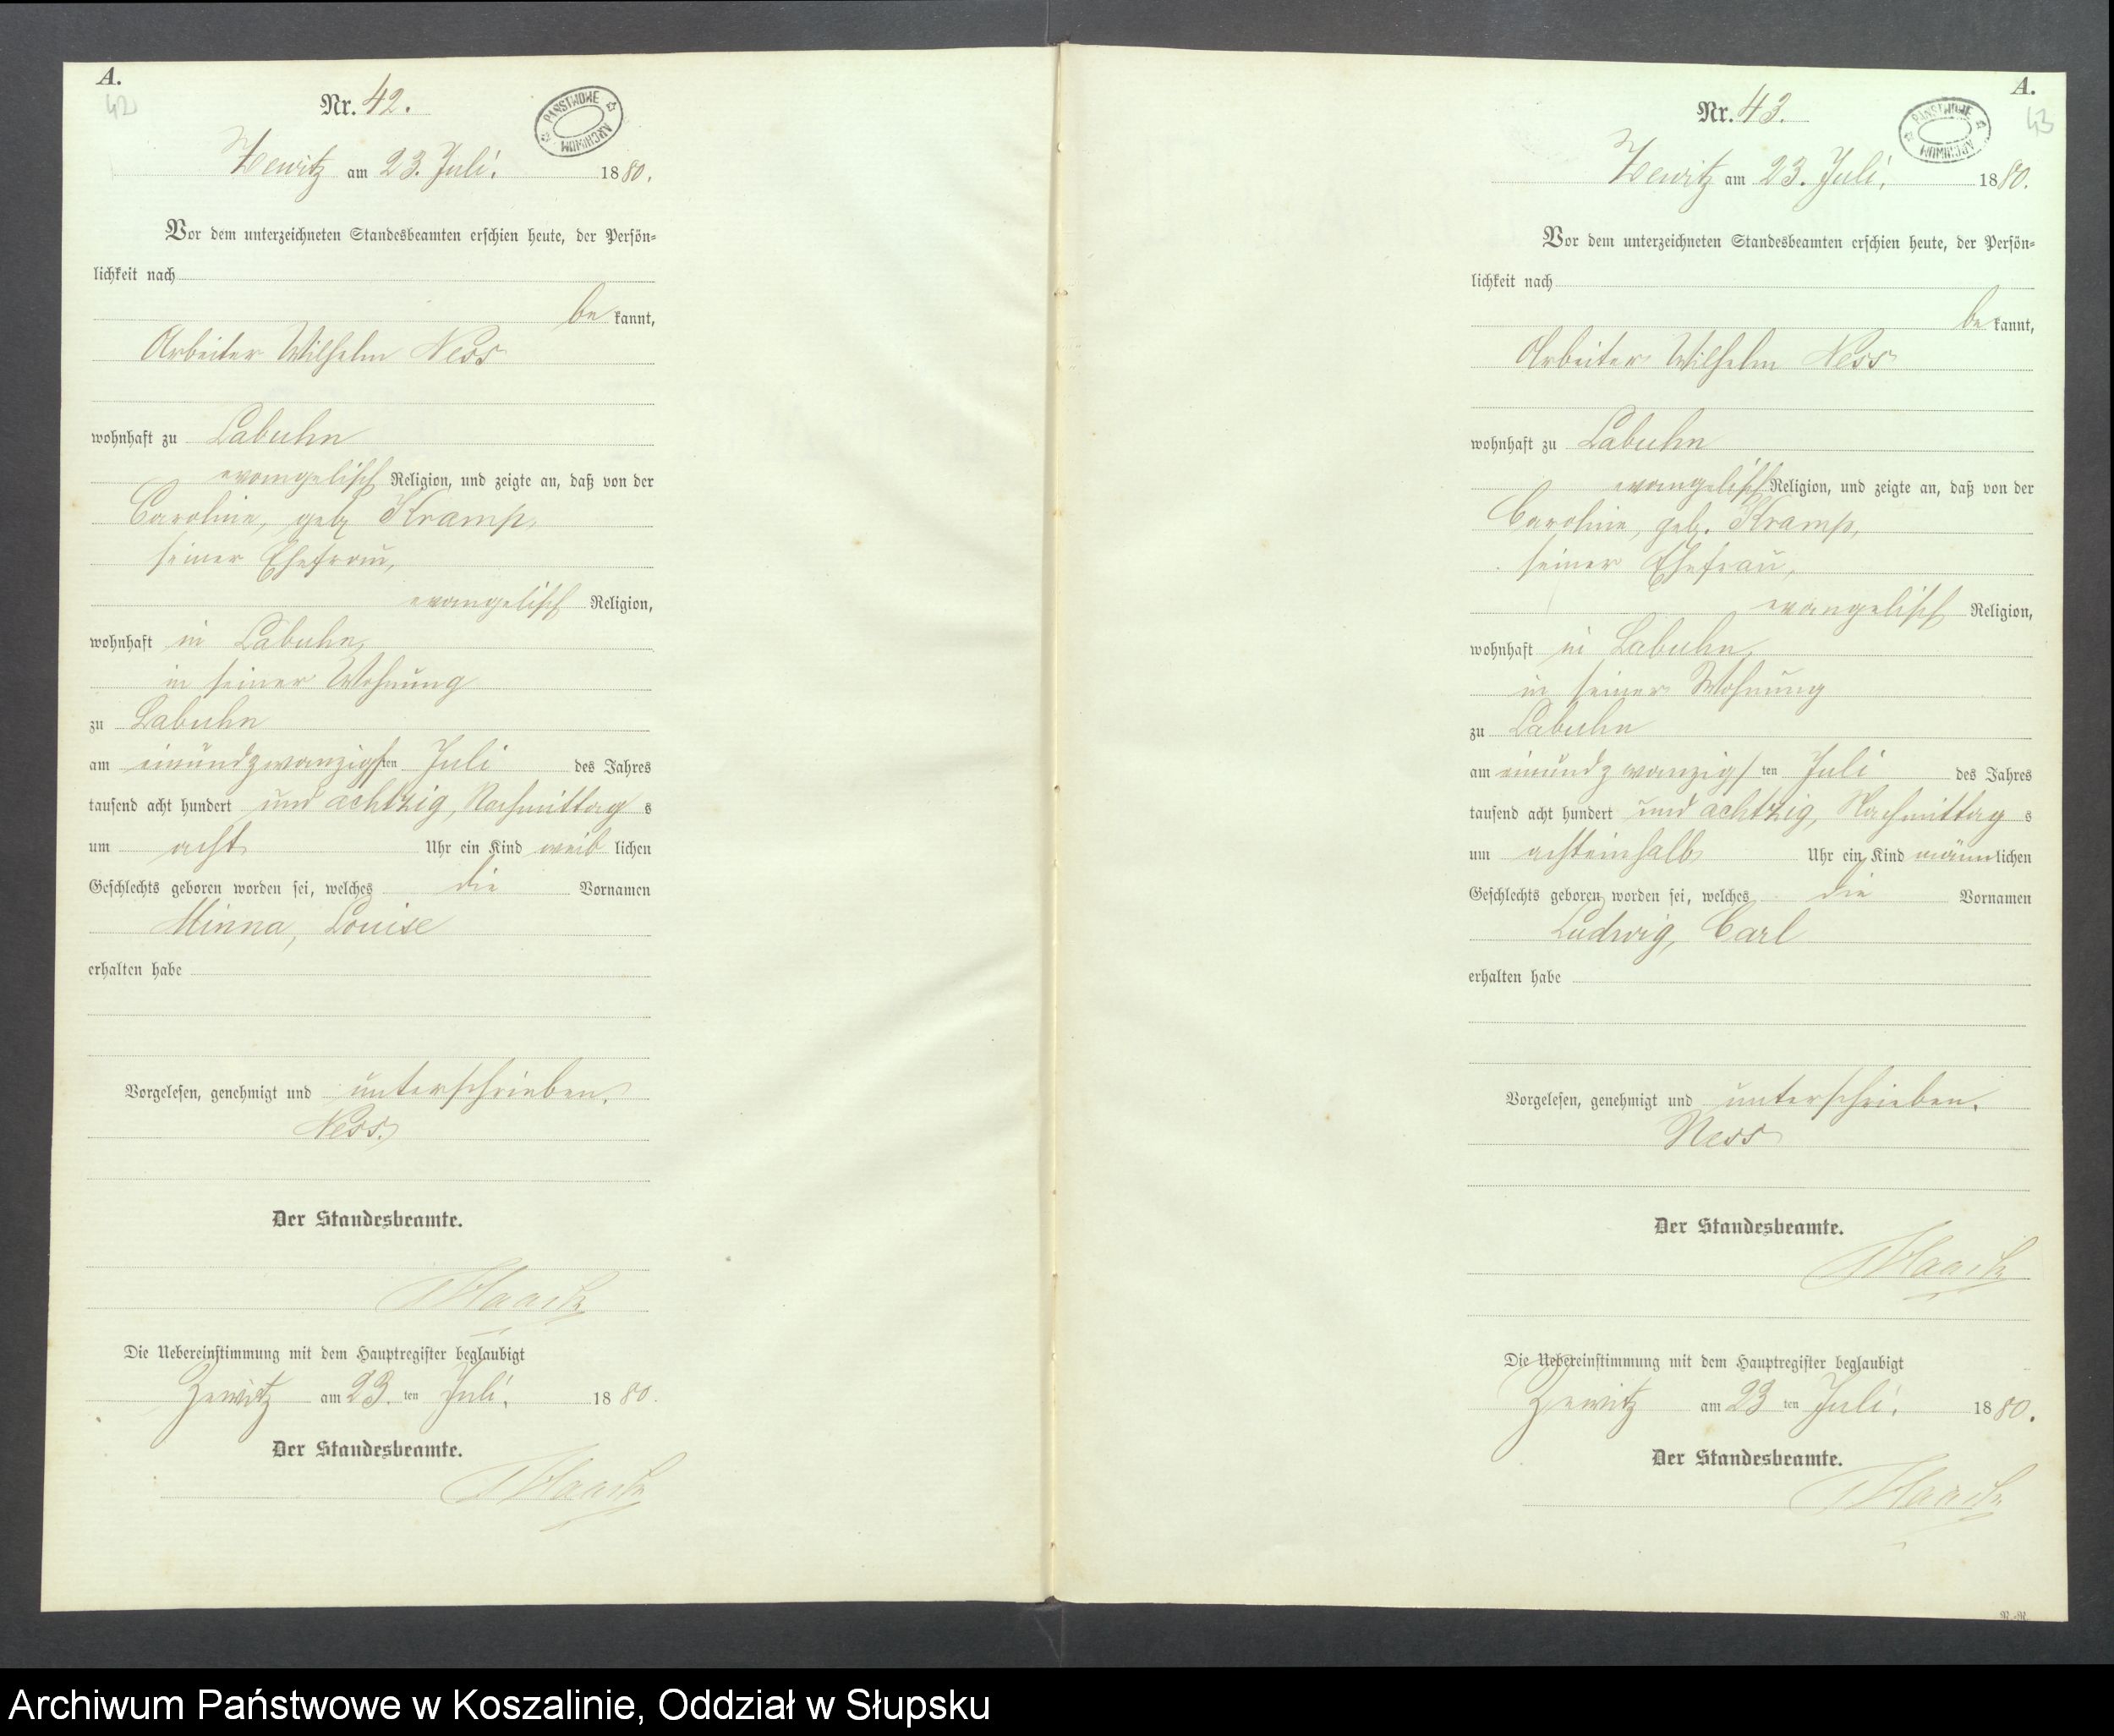 A.
42
Nr. 42.
PAŃSTWOWE ARCHIWUM
Zewitz am 23. Juli. 1880.
Vor dem unterzeichneten Standesbeamten erschien heute, der Persön-
lichkeit nach
be kannt,
Arbeiter Wilhelm Ness
wohnhaft zu Labuhn
evangelisch Religion, und zeigte an, daß von der
Caroline, geb. Kramp,
seiner Ehefrau,
evangelisch Religion,
wohnhaft in Labuhn,
in seiner Wohnung
zu Labuhn
am einundzwanzigsten Juli des Jahres
tausend acht hundert und achtzig, Nachmittag s
um acht Uhr ein Kind weib lichen
Geschlechts geboren worden sei, welches die Vornamen
Minna, Louise
erhalten habe
Vorgelesen, genehmigt und unterschrieben.
Ness.
Der Standesbeamte.
Die Uebereinstimmung mit dem Hauptregister beglaubigt
Zewitz am 23. ten Juli. 1880.
Der Standesbeamte.
A.
43
Nr. 43.
PAŃSTWOWE ARCHIWUM
Zewitz am 23. Juli. 1880.
Vor dem unterzeichneten Standesbeamten erschien heute, der Persön-
lichkeit nach
be kannt,
Arbeiter Wilhelm Ness
wohnhaft zu Labuhn
evangelisch Religion, und zeigte an, daß von der
Caroline, geb. Kramp,
seiner Ehefrau,
evangelisch Religion,
wohnhaft in Labuhn,
in seiner Wohnung
zu Labuhn
am einundzwanzigs ten Juli des Jahres
tausend acht hundert und achtzig, Nachmittag s
um achteinhalb Uhr ein Kind männlichen
Geschlechts geboren worden sei, welches die Vornamen
Ludwig, Carl
erhalten habe
Vorgelesen, genehmigt und unterschrieben.
Ness
Der Standesbeamte.
Die Uebereinstimmung mit dem Hauptregister beglaubigt
Zewitz am 23 ten Juli. 1880.
Der Standesbeamte.
Archiwum Państwowe w Koszalinie, Oddział w Słupsku